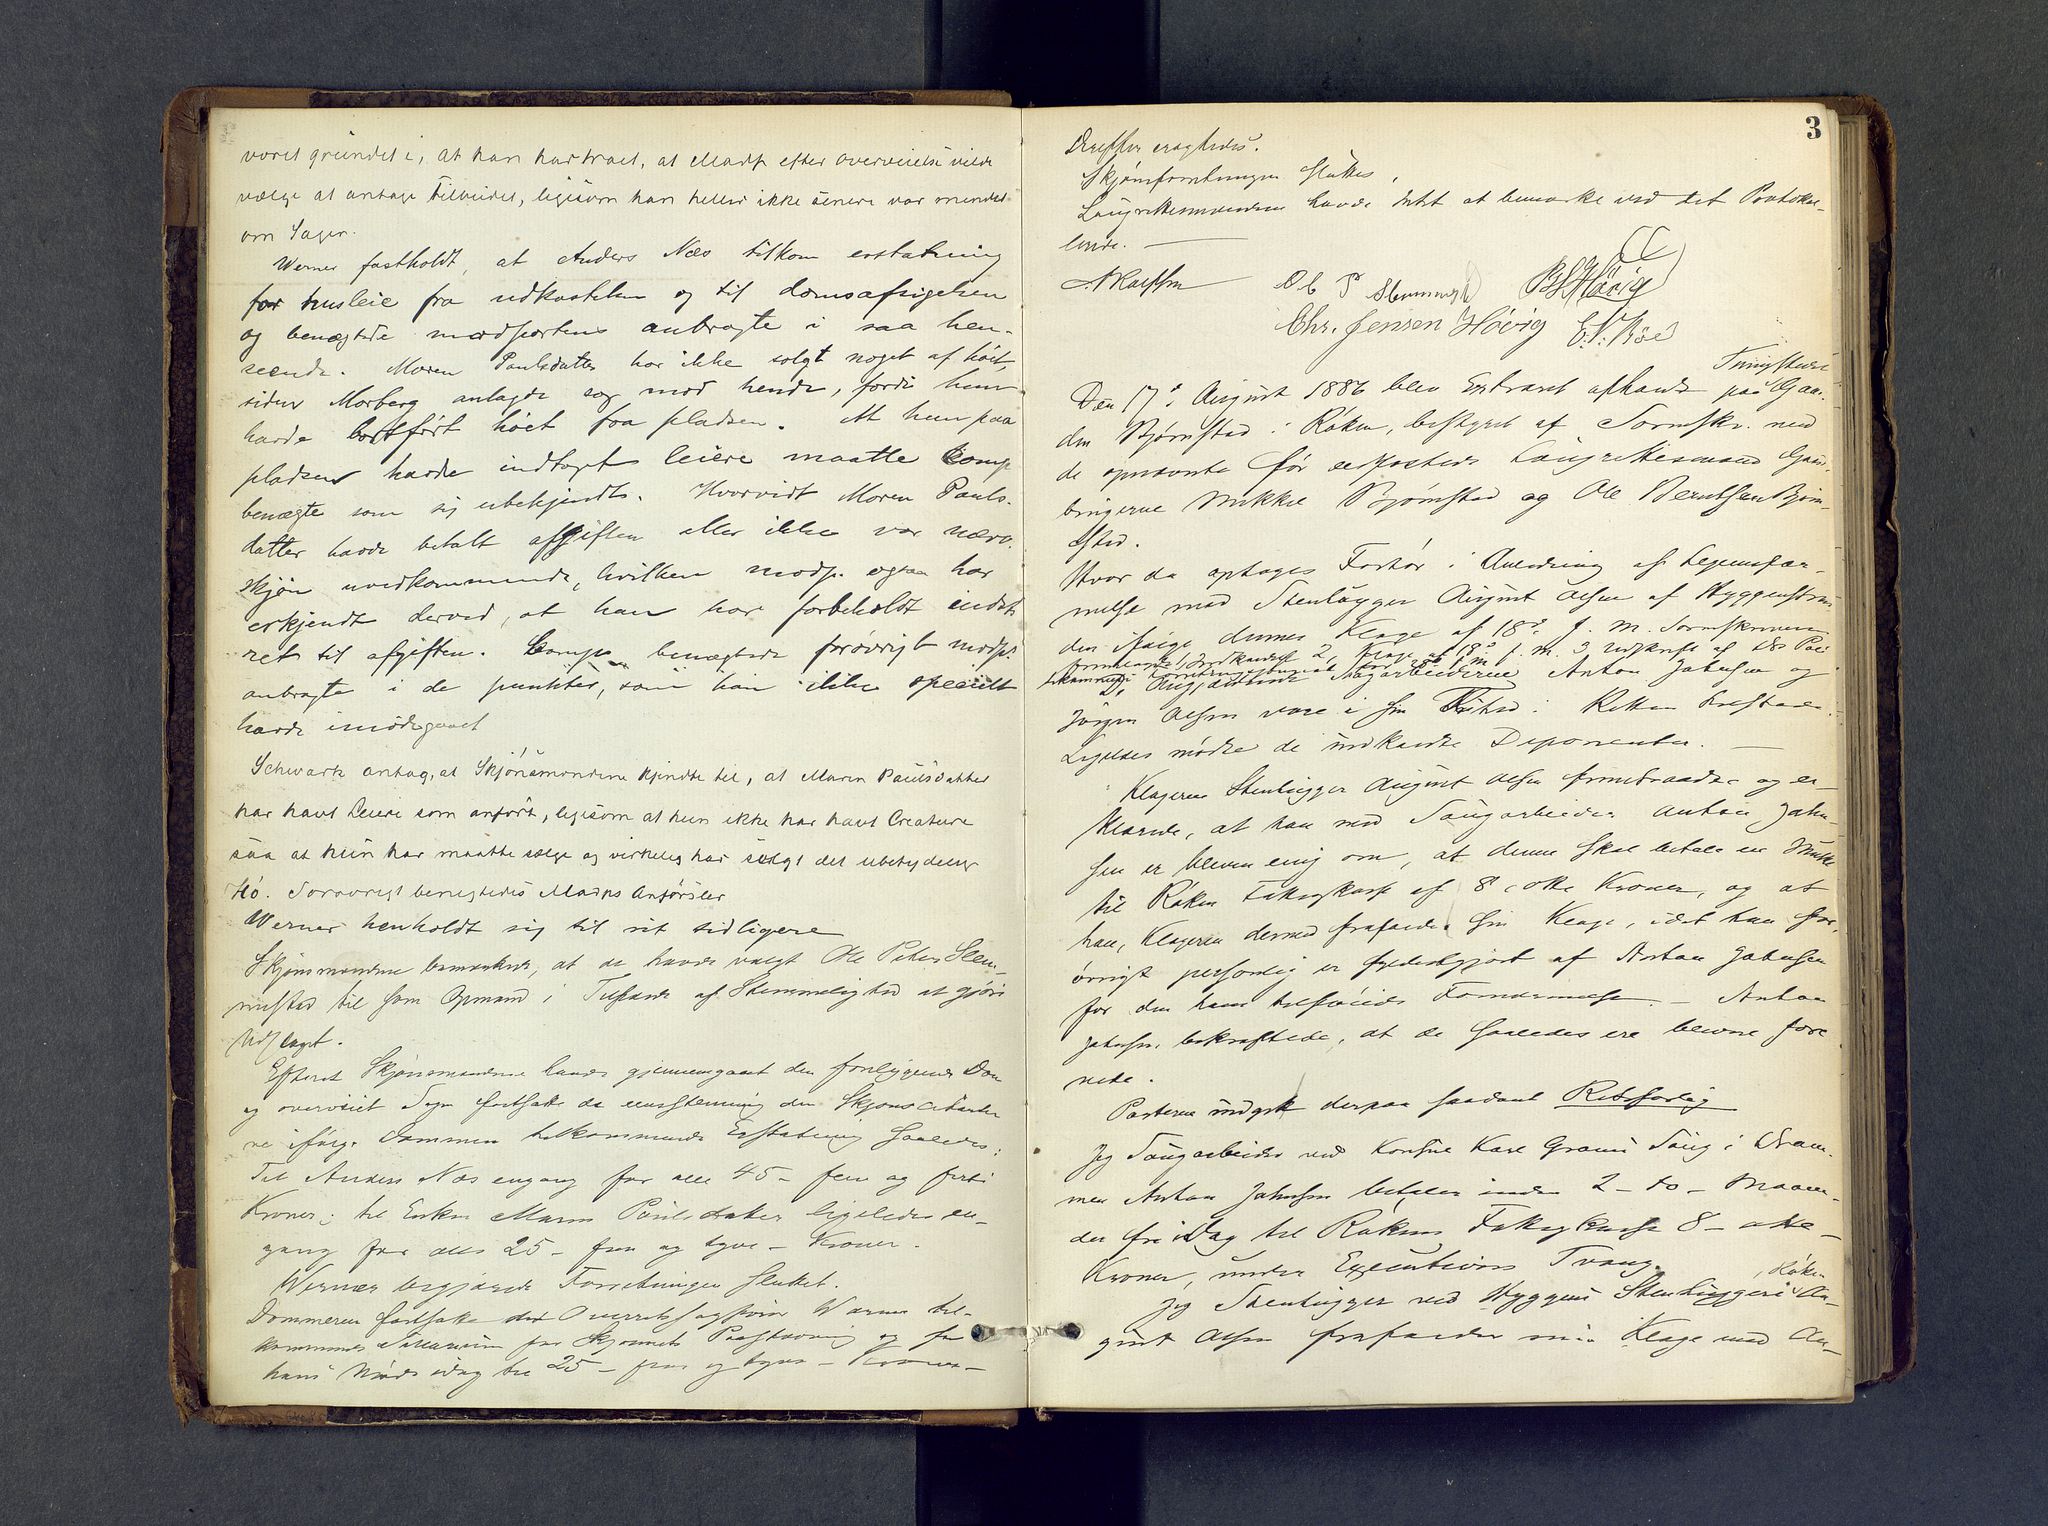 været grundet i, at han har troet, at Madp efter overveielse vilde
vælge at antage Tilbudet, ligesom han heller ikke senere var mindet
om Sagen.
Werner fastholdt, at Anders Næs tilkom erstatning
for husleie fra udkastelsen og til domsafsigelsen
og benægtede modpartens anbragte i saa hen-
seende. Maren Paulsdatter har ikke solgt noget af höet,
siden Morberg anlagde sag mod hende, fordi hun
havde bortfört höet fra pladsen. At hun paa
pladsen havde indtaget leiere maatte Comp
benægte som sig ubekjendt. Hvorvidt Maren Pauls-
datter havde betalt afgiften eller ikke var nærv.
skjön uvedkommende, hvilken modp. ogsaa har
erkjendt derved, at han har forbeholdt
ret til afgiften. Comp benægtede forövrigt modps
anbragte i de punkter, som han ikke specielt
havde imödegaaet
Schwartz antog, at Skjönsmændene kjendte til, at Maren Paulsdatter
har havt Leiere som anfört, ligesom at hun ikke har havt Creature
saa at hun har maatte sælge og virkelig har solgt det ubetydelige
Hö. Forövrigt benegtedes Madps Anförsler
Werner henholdt sig til sit tidligere
Skjönsmændene bemærkede, at de havde valgt Ole Peter Stem-
mestad til som Opmand i Tilfælde af Stemmelighed at gjöre
Udslaget.
Efterat Skjönsmændene havde gjennemgaaet den foreliggende Dom
og overveiet Sagen fastsatte de eenstemmig den Skjöns
ne ifölge Dommen tilkommende Erstatning saaledes:
Til Anders Næs engang for alle 45 - fem og forti
Kroner; til Enken Maren Paulsdatter ligeledes en-
gang for alle 25 - fem og tyve - Kroner.
Werner begjærede Forretningen sluttet.
Dommeren fastsatte det Overretssagförer Werner til-
kommende Salarium for Skjönnets Paastævning og for
hans Möde idag til 25 - fem og tyve - Kroner
3
Derefter eragtedes:
Skjönsforretningen sluttes.
Laugrettesmændene havde Intet at bemærke ved det Protokol-
lerede. —
Ole P Stemmestad BHHövig
Chr. Jensen Hövig
Den 17de August 1886 blev Extraret afholdt paa Gaar-
den Björnstad i Röken, bestyret af Sorenskr. med
de opnævnte før edfæstede Laugrettesmænd Gaard-
brugerne Mikkel Björnstad og Ole Berntsen Björn-
stad.
Hvor da optoges Forhör i Anledning af Legemsfor-
nelse mod Stenhugger August Olsen af Hyggenstran-
den ifölge dennes Klage af 18de f. M. Sorenskriveren
Anton Jakobsen og
Jörgen Olsen vare i sin Tid i Retten tilstede.
Ligeledes mödte de indkaldte Deponenter. —
Klageren Stenhugger August Olsen fremtraadte og er-
klærede, at han med Saugarbeider Anton Jakob-
sen er bleven enig om, at denne skal betale en Mulkt
til Röken Fattigkasse af 8, otte Kroner, og at
han, Klageren dermed frafalder sin Klage, idet han for-
övrigt personlig er fyldestgjort af Anton Jakobsen
for den ham tilföiede Fornærmelse. - Anton
Jakobsen bekræftede, at de saaledes ere blevne fore
nede.
Parterne indgik derpaa saadant Retsforlig
Jeg Saugarbeider ved Konsul Karl Graus Saug i Dram-
men Anton Jakobsen betaler inden 2 - to - Maane-
der fra idag til Rökens Fattigkasse 8 - otte -
Kroner, under Executions Tvang.
Jeg Stenhugger ved Hyggens Stenhuggeri, Röken Au-
gust Olsen frafalder min Klage mod An-